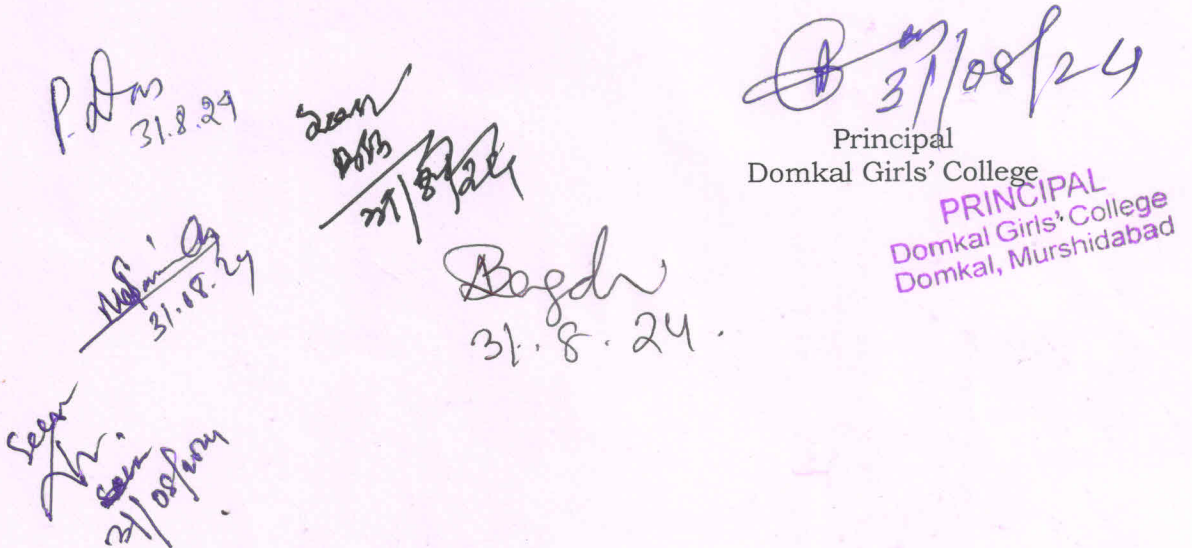 P. Das
31.8.24
Seen
31/8/24
31/08/24
Principal
Domkal Girls' College
PRINCIPAL
Domkal Girls' College
Domkal, Murshidabad
31.08.24
Bagdi
31.8.24.
Seen
Seen
31/08/2024